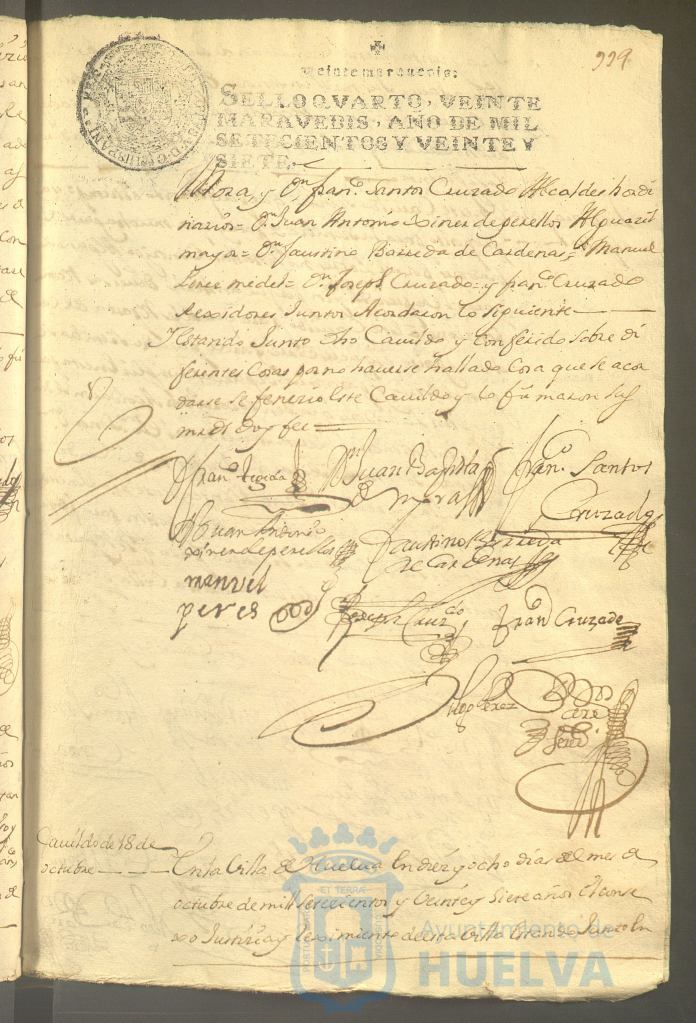 999
Veinte maravedis:
SELLO QVARTO, VEINTE
MARAVEDIS, AÑO DE MIL
SETECIENTOS Y VEINTE Y
SIETE.
Mora, y Dn. franco. Santos Cruzado Alcaldes hordi
narios= Dn. Juan Antonio Xines de perellos Alguazil
mayor= Dn. faustino Barreda de Cardenas= Manuel
Perez = Dn. Joseph Cruzado= y franco. Cruzado
Rexidores Juntos Acordaron lo siguiente
Y estando Junto dho Cauildo y conferido sobre di
ferentes Cosas por no hauerse hallado Cosa que se acor
darse se fenecio este Cauildo y lo firmaron sus
mrds doy fee=
franco. Dn. Juan Baptista franco. Santos
de mora Cruzado
Dn. Juan Antonio
Xines de perellos faustino Barreda
de Cardenas
manuel
peres Joseph Cruzdo franco Cruzado
Diego Perez
Cauildo de 18 de
octubre
En la Villa de Huelua en diez y ocho dias del mes de
octubre de mill setecientos y Veinte y siete años el conse
xo Justicia y reximiento desta Villa estando Junto en
ET TERRAE
Ayuntamiento de
HUELVA